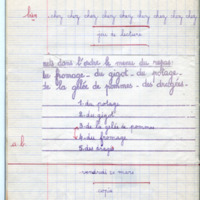 bien chez chez chez chez chez chez chez chez
jeu de lecture
mets dans l'ordre le menu du repas
le fromage - du gigot - du potage -
de la gelée de pommes - des dragées.
1. du potage
2. du gigot
3. de la gelée de pomme
a.b. 4. du fromage
5. des dragées
vendredi 12 mars
copie